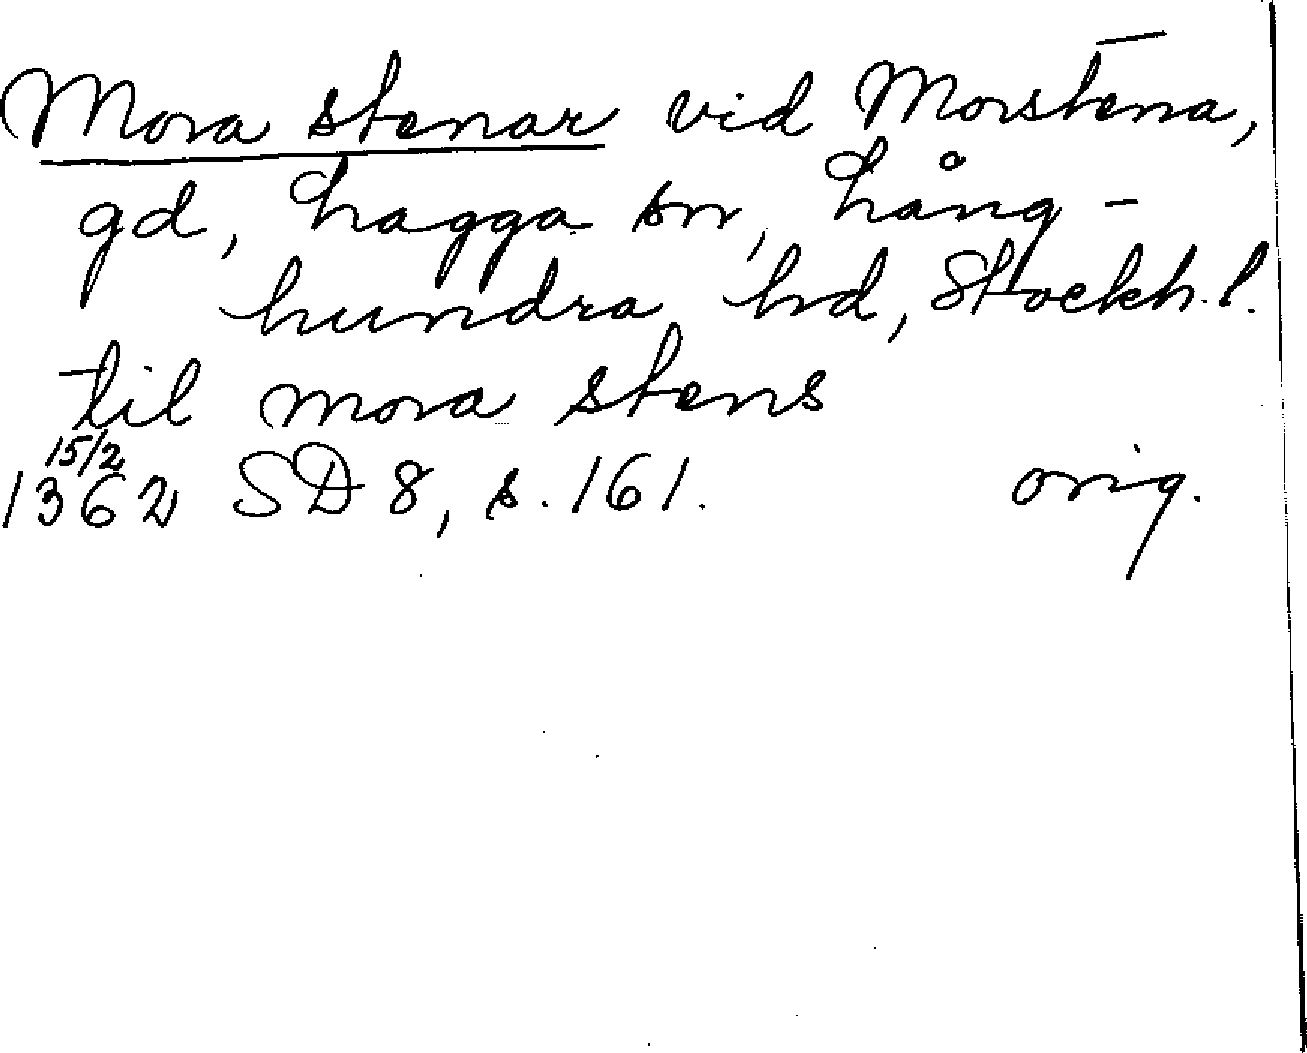 Mora stenar vid Morstena,
gd, Lagga sn, Lång-
hundra hd, Stockh. l.
til mora stens
15/2
1362 SD 8, s. 161. orig.